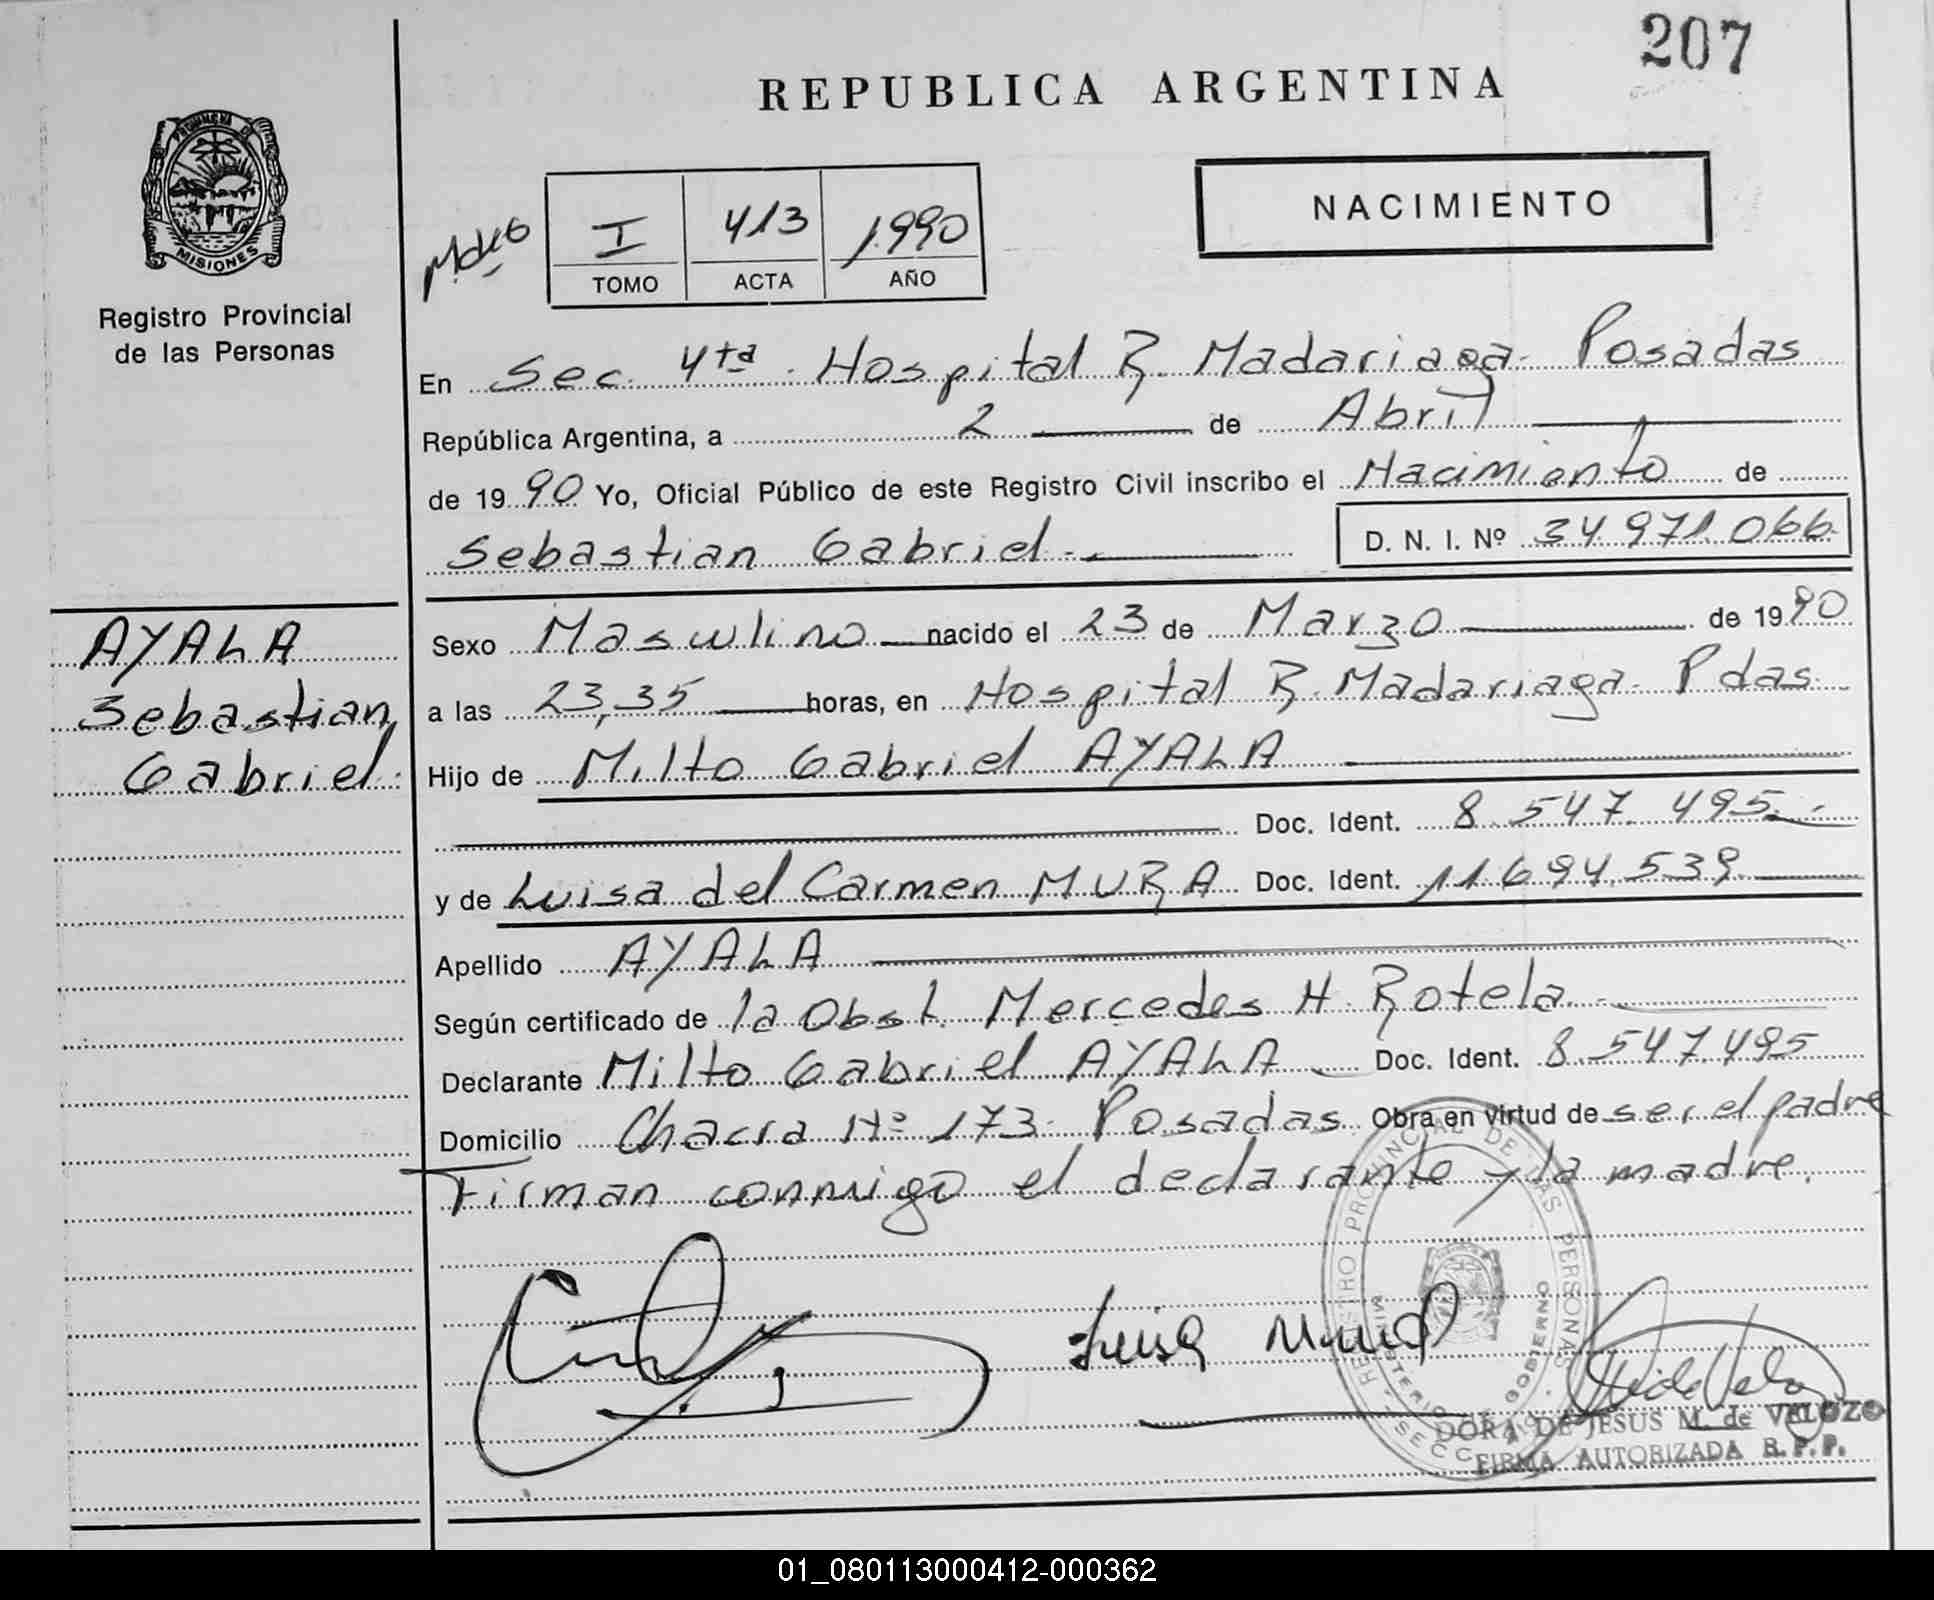 207
REPUBLICA ARGENTINA
PROVINCIA DE
MISIONES
Registro Provincial
de las Personas
I 413 1990
TOMO ACTA AÑO
NACIMIENTO
En Sec. 4ta. Hospital R. Madariaga. Posadas
República Argentina, a 2 de Abril
de 1990 Yo, Oficial Público de este Registro Civil inscribo el Nacimiento de
Sebastian Gabriel.- D. N. I. Nº 34.971.066
AYALA
Sebastian
Gabriel.
Sexo Masculino nacido el 23 de Marzo de 1990
a las 23,35 horas, en Hospital R. Madariaga. Pdas.
Hijo de Milto Gabriel AYALA
Doc. Ident. 8.547.495.-
y de Luisa del Carmen MURA Doc. Ident. 11.694.539
Apellido AYALA
Según certificado de la Obst. Mercedes H. Rotela.-
Declarante Milto Gabriel AYALA Doc. Ident. 8.547.495
Domicilio Chacra Nº 173. Posadas. Obra en virtud de ser el padre
Firman conmigo el declarante y la madre.
Luisa Mura
REGISTRO PROVINCIAL DE LAS PERSONAS
MINISTERIO DE GOBIERNO
DORA DE JESUS M. de VELOZO
FIRMA AUTORIZADA R. P. P.
01_080113000412-000362